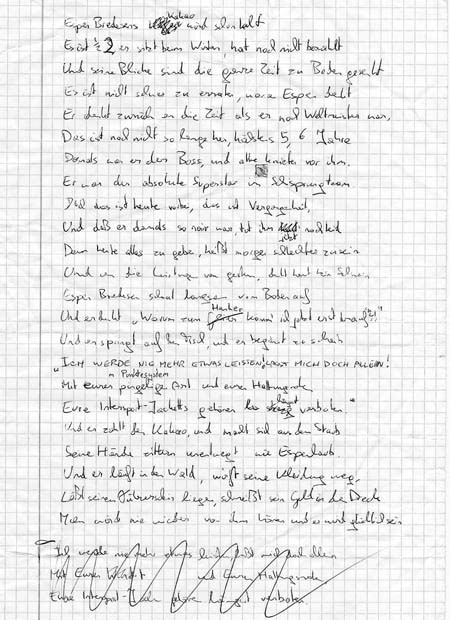 Espen Bredesens Kakao wird schon kalt
Es ist ½ 2 er sitzt beim Wirten hat noch nicht bezahlt
Und seine Blicke sind die ganze Zeit zu Boden gesenkt
Es ist nicht schwer zu erraten, woran Espen denkt
Er denkt zurück an die Zeit als er noch Weltmeister war,
Das ist noch nicht so lange her, höchstens 5, 6 Jahre
Damals war er der Boss, und alle knieten vor ihm.
Er war der absolute Superstar im Schisprungteam
Doch das ist heute vorbei, das ist Vergangenheit,
Und daß er damals so war, tut ihm jetzt noch leid
Denn heute alles zu geben, heißt morgen schlechter zu sein
Und um die Leistung von gestern, schert sich kein Schwein
Espen Bredesen schaut langsam vom Boden auf
Und er denkt „Warum zum Henker komm' ich jetzt erst drauf?!"
Und er springt auf den Tisch, und er beginnt zu schrein
„ICH WERDE NIE MEHR ETWAS LEISTEN! LASST MICH DOCH ALLEIN!
Mit eurem Punktesystem und euren Haltungsnoten
Eure Intersport-Jacketts gehören verboten"
Und er zahlt den Kakao, und macht sich aus dem Staub
Seine Hände zittern unentwegt wie Espenlaub.
Und er läuft in den Wald, wirft seine Kleidung weg,
Läßt seinen Führerschein liegen, schmeißt sein Geld in den Dreck
Man wird nie wieder von ihm hören und er wird glücklich sein
Ich werde nie mehr etwas leisten, laßt mich doch allein
Mit Euren und Euren Haltungsnoten
Eure Intersport- gehören verboten